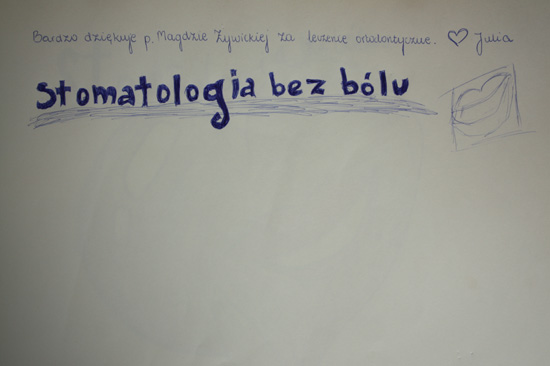 Bardzo dziękuję p. Magdzie Żywickiej za leczenie ortodontyczne. ♡ Julia
Stomatologia bez bólu